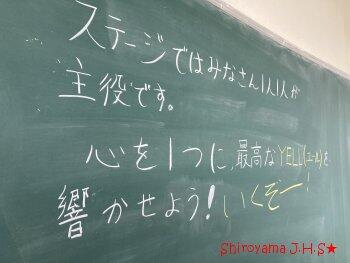 ステージではみなさん1人1人が
主役です。
心を1つに、最高なYELL(エール)を
響かせよう!いくぞー!
Shiroyama J.H.S★